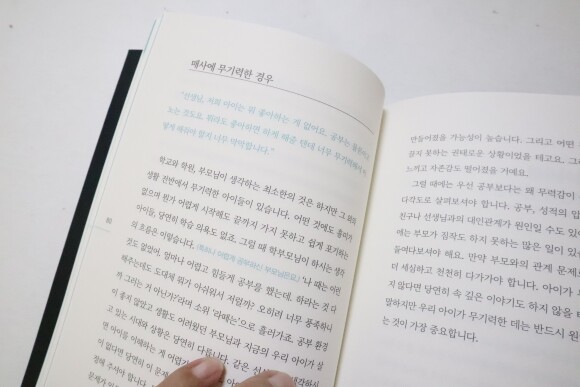 매사에 무기력한 경우
"선생님, 저희 아이는 뭐 좋아하는 게 없어요. 공부는
노는 것도요. 뭐라도 좋아하면 하게 해줄 텐데 너무 무기력해서
떻게 해줘야 할지 너무 막막합니다."
학교와 학원, 부모님이 생각하는 최소한의 것은 하지만 그 외의
생활 전반에서 무기력한 아이들이 있습니다. 어떤 것에도 흥미가
없으며 뭔가 어렵게 시작해도 끝까지 가지 못하고 쉽게 포기하는
아이들, 당연히 학습 의욕도 없죠. 그럴 때 학부모님이 하시는 생각
의 흐름은 이렇습니다. (특히나 어렵게 공부하신 부모님은요.) '나 때는 이런
것도 없었어, 얼마나 어렵고 힘들게 공부를 했는데, 하라는 것 다
해주는데도 도대체 뭐가 아쉬워서 저럴까? 오히려 너무 풍족하니
까 그러는 거 아닌가?'라며 소위 '라떼는'으로 흘러가죠. 공부 환경
이 좋지 않았고 생활도 어려웠던 부모님과 지금의 우리 아이가 살
고 있는 시대와 상황은 당연히 다릅니다. 같은
면 아이들을 이해하는 게 어렵
이 없다면 당연히 이 문제
정해 주셔야 합니다.
문제가 있
만들어졌을 가능성이 높습니다. 그리고 어떤
끊지 못하는 권태로운 상황이었을 테고요. 그
느끼고 자존감도 떨어졌을 거예요.
그럴 때에는 우선 공부보다는 왜 무력감이
다각도로 살펴보셔야 합니다. 공부, 성적의 압
친구나 선생님과의 대인관계가 원인일 수도 있
에는 부모가 짐작도 하지 못하는 많은 일이 있
들여다보셔야 해요. 만약 부모와의 관계 문제
더 세심하고 천천히 다가가야 합니다. 아이
지 않다면 당연히 속 깊은 이야기도 하지 않을 테
말하지만 우리 아이가 무기력한 데는 반드시 원
는 것이 가장 중요합니다.